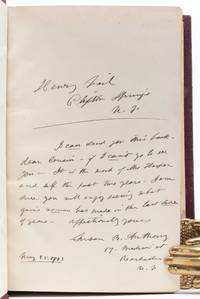 Henry Lail
Clifton Springs
N. Y.
I can send you this book -
dear Cousin - if I can't go to see
you - It is the work of Mrs Harper
and self the past two years - I am
sure you will enjoy seeing what
gains woman has made in the last
of years - affectionately yours
Susan B. Anthony
17. Madison st
Rochester
N. Y.
May 25. 1903